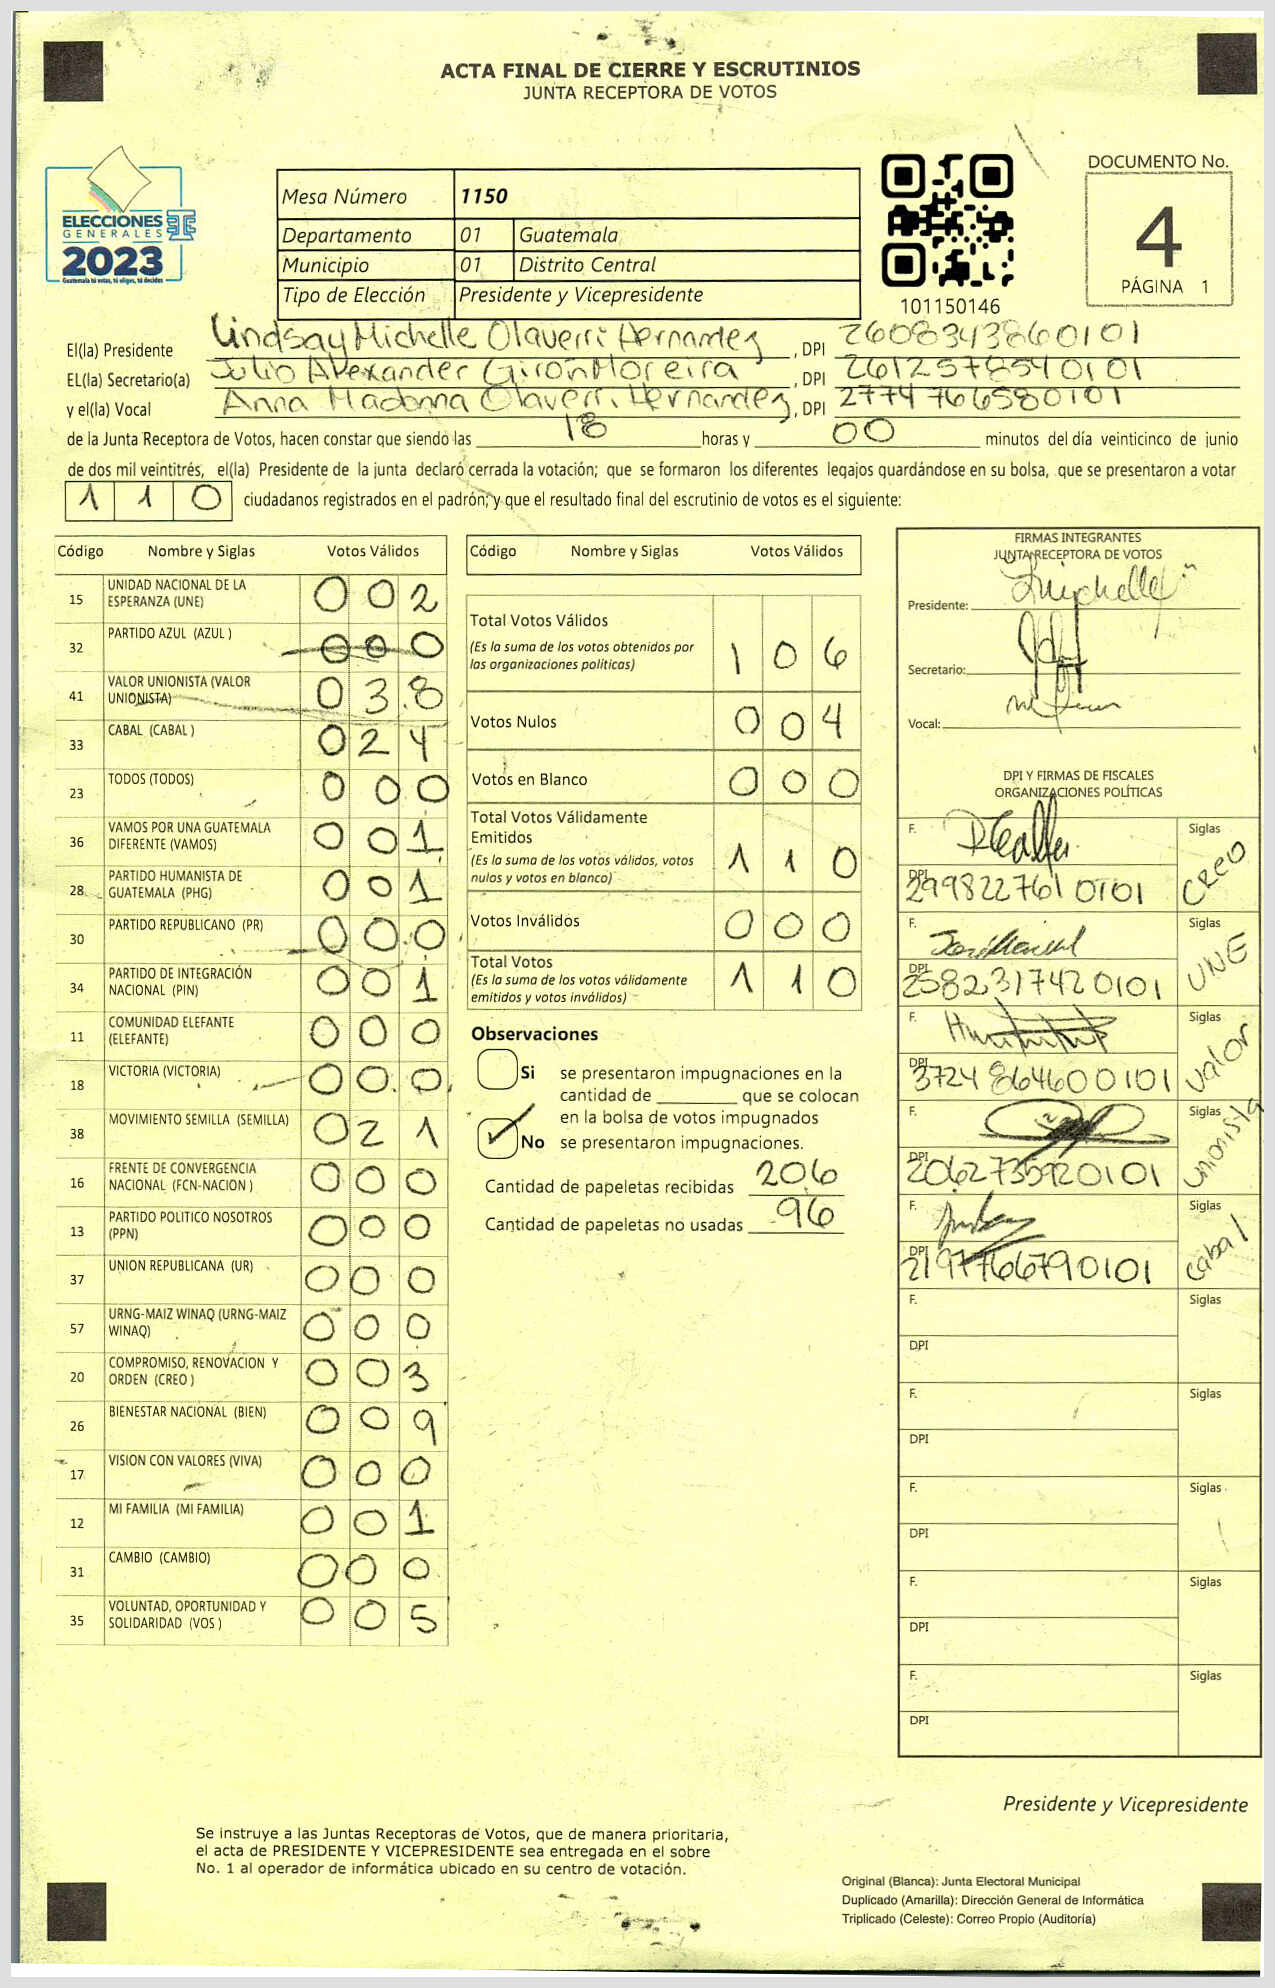 ACTA FINAL DE CIERRE Y ESCRUTINIOS
JUNTA RECEPTORA DE VOTOS
ELECCIONES
GENERALES
2023
Guatemala tú votas, tú eliges, tú decides
Mesa Número 1150
Departamento 01 Guatemala
Municipio 01 Distrito Central
Tipo de Elección Presidente y Vicepresidente
101150146
DOCUMENTO No.
4
PÁGINA 1
El(la) Presidente Lindsay Michelle Olaverri Hernandez, DPI 2608343860101
EL(la) Secretario(a) Julio Alexander Girón Moreira, DPI 2612578540101
y el(la) Vocal Anna Madonna Olaverri Hernandez, DPI 2774766580101
de la Junta Receptora de Votos, hacen constar que siendo las 18 horas y 00 minutos del día veinticinco de junio
de dos mil veintitrés, el(la) Presidente de la junta declaró cerrada la votación; que se formaron los diferentes legajos guardándose en su bolsa, que se presentaron a votar
1 1 0 ciudadanos registrados en el padrón; y que el resultado final del escrutinio de votos es el siguiente:
Código Nombre y Siglas Votos Válidos
15 UNIDAD NACIONAL DE LA
ESPERANZA (UNE) 0 0 2
32 PARTIDO AZUL (AZUL ) 0 0 0
41 VALOR UNIONISTA (VALOR
UNIONISTA) 0 3 8
33 CABAL (CABAL ) 0 2 4
23 TODOS (TODOS) 0 0 0
36 VAMOS POR UNA GUATEMALA
DIFERENTE (VAMOS) 0 0 1
28 PARTIDO HUMANISTA DE
GUATEMALA (PHG) 0 0 1
30 PARTIDO REPUBLICANO (PR) 0 0 0
34 PARTIDO DE INTEGRACIÓN
NACIONAL (PIN) 0 0 1
11 COMUNIDAD ELEFANTE
(ELEFANTE) 0 0 0
18 VICTORIA (VICTORIA) 0 0 0
38 MOVIMIENTO SEMILLA (SEMILLA) 0 2 1
16 FRENTE DE CONVERGENCIA
NACIONAL (FCN-NACION ) 0 0 0
13 PARTIDO POLITICO NOSOTROS
(PPN) 0 0 0
37 UNION REPUBLICANA (UR) 0 0 0
57 URNG-MAIZ WINAQ (URNG-MAIZ
WINAQ) 0 0 0
20 COMPROMISO, RENOVACION Y
ORDEN (CREO ) 0 0 3
26 BIENESTAR NACIONAL (BIEN) 0 0 9
17 VISION CON VALORES (VIVA) 0 0 0
12 MI FAMILIA (MI FAMILIA) 0 0 1
31 CAMBIO (CAMBIO) 0 0 0
35 VOLUNTAD, OPORTUNIDAD Y
SOLIDARIDAD (VOS ) 0 0 5
Código Nombre y Siglas Votos Válidos
Total Votos Válidos
(Es la suma de los votos obtenidos por
las organizaciones políticas) 1 0 6
Votos Nulos 0 0 4
Votos en Blanco 0 0 0
Total Votos Válidamente
Emitidos
(Es la suma de los votos válidos, votos
nulos y votos en blanco) 1 1 0
Votos Inválidos 0 0 0
Total Votos
(Es la suma de los votos válidamente
emitidos y votos inválidos) 1 1 0
Observaciones
Si se presentaron impugnaciones en la
cantidad de ________ que se colocan
en la bolsa de votos impugnados
No se presentaron impugnaciones.
Cantidad de papeletas recibidas 206
Cantidad de papeletas no usadas 96
FIRMAS INTEGRANTES
JUNTA RECEPTORA DE VOTOS
Presidente:
Secretario:
Vocal:
DPI Y FIRMAS DE FISCALES
ORGANIZACIONES POLÍTICAS
F. Siglas
DPI 2998227610101 CREO
F. Siglas
DPI 2582317420101 UNE
F. Siglas
DPI 3724864600101 Valor
F. Siglas
DPI 2062735920101 unionista
F. Siglas
DPI 2197766790101 cabal
F. Siglas
DPI
F. Siglas
DPI
F. Siglas
DPI
F. Siglas
DPI
F. Siglas
DPI
Presidente y Vicepresidente
Se instruye a las Juntas Receptoras de Votos, que de manera prioritaria,
el acta de PRESIDENTE Y VICEPRESIDENTE sea entregada en el sobre
No. 1 al operador de informática ubicado en su centro de votación.
Original (Blanca): Junta Electoral Municipal
Duplicado (Amarilla): Dirección General de Informática
Triplicado (Celeste): Correo Propio (Auditoría)